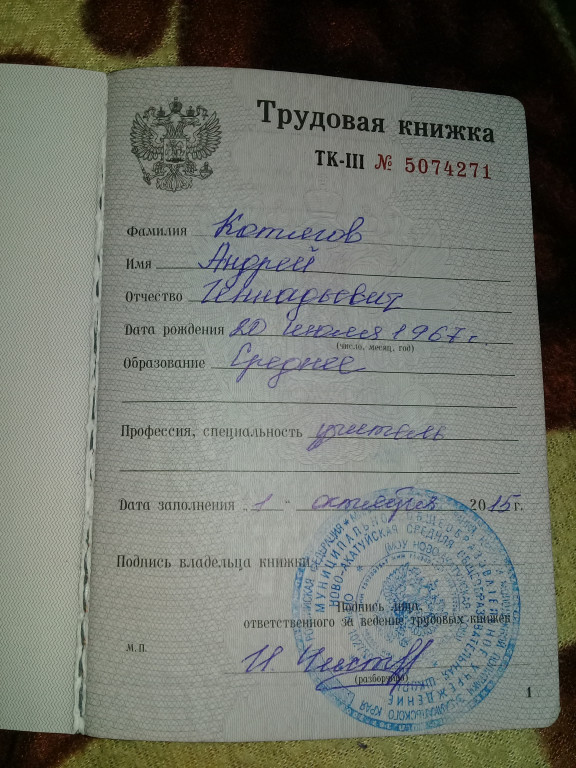 Трудовая книжка
ТК-III № 5074271
Фамилия Котегов
Имя Андрей
Отчество Геннадьевич
Дата рождения 20 июля 1967 г.
(число, месяц, год)
Образование Среднее
Профессия, специальность учитель
Дата заполнения „ 1 “ октября 2015 г.
Подпись владельца книжки
Подпись лица,
ответственного за ведение трудовых книжек
М.П.
(разборчиво)
1
РОССИЙСКАЯ ФЕДЕРАЦИЯ
МУНИЦИПАЛЬНОЕ ОБЩЕОБРАЗОВАТЕЛЬНОЕ УЧРЕЖДЕНИЕ
НОВО-АКАТУЙСКАЯ СРЕДНЯЯ ОБЩЕОБРАЗОВАТЕЛЬНАЯ ШКОЛА